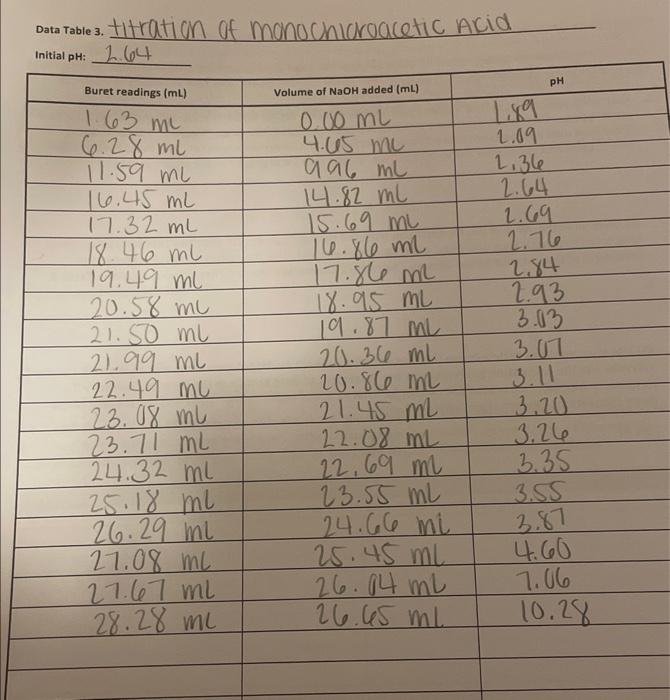 Data Table 3. titration of monochloroacetic Acid
Initial pH: 2.64
Buret readings (mL) Volume of NaOH added (mL) pH
1.63 mL 0.00 mL 1.89
6.28 mL 4.65 mL 2.09
11.59 mL 9.96 mL 2.36
16.45 mL 14.82 mL 2.64
17.32 mL 15.69 mL 2.69
18.46 mL 16.86 mL 2.76
19.49 mL 17.86 mL 2.84
20.58 mL 18.95 mL 2.93
21.50 mL 19.87 mL 3.03
21.99 mL 20.36 mL 3.07
22.49 mL 20.86 mL 3.11
23.08 mL 21.45 mL 3.20
23.71 mL 22.08 mL 3.26
24.32 mL 22.69 mL 3.35
25.18 mL 23.55 mL 3.55
26.29 mL 24.66 mL 3.87
27.08 mL 25.45 mL 4.60
27.67 mL 26.04 mL 7.06
28.28 mL 26.65 mL 10.28